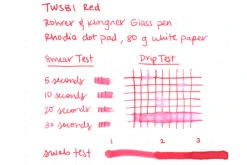 TWSBI Red
Rohrer & Klingner Glass pen
Rhodia dot pad, 80 g white paper
Smear Test
Drip Test
5 seconds
10 seconds
20 seconds
30 seconds
1 2 3
swab test